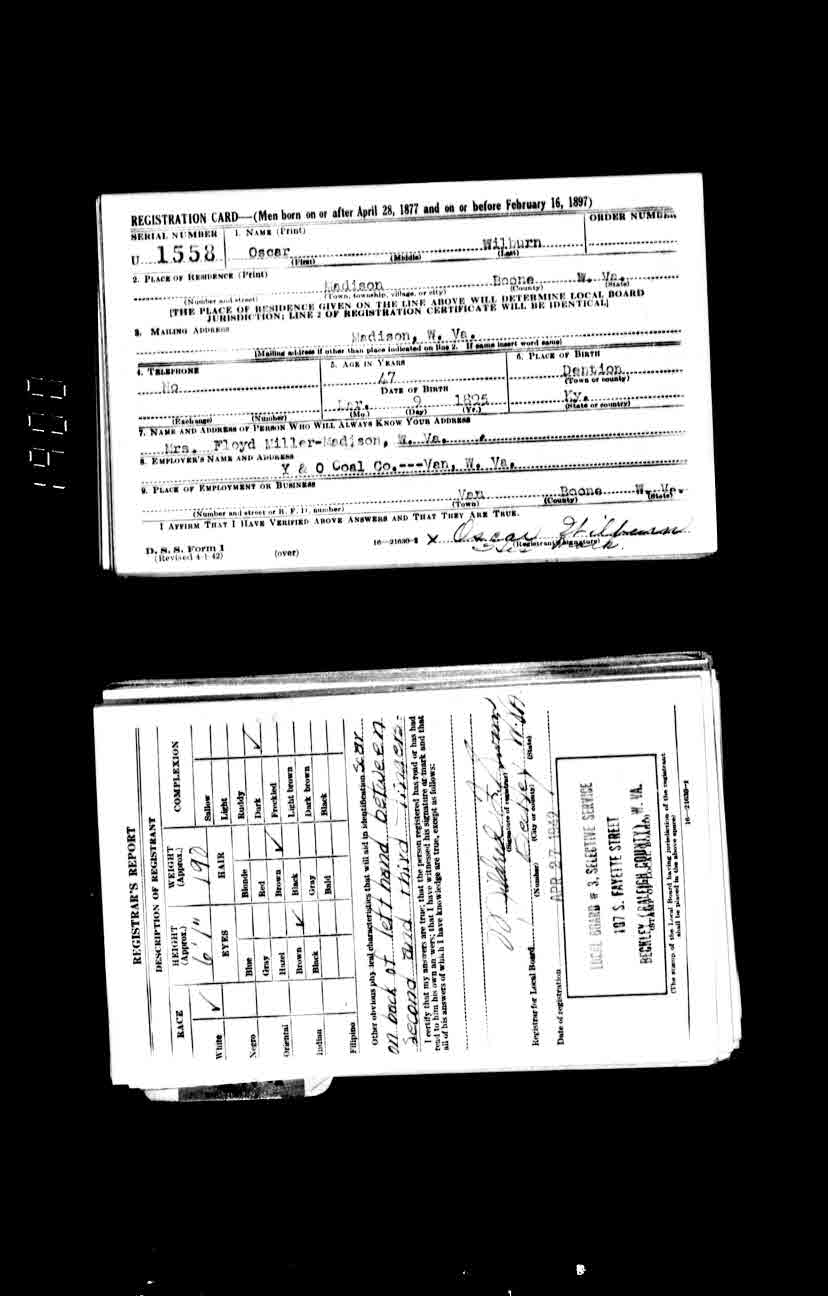 REGISTRATION CARD—(Men born on or after April 28, 1877 and on or before February 16, 1897)
SERIAL NUMBER
1. NAME (Print)
ORDER NUMBER
U 1558
Oscar Wilburn
(First) (Middle) (Last)
2. PLACE OF RESIDENCE (Print)
Madison Boone W. Va.
(Number and street) (Town, township, village, or city) (County) (State)
[THE PLACE OF RESIDENCE GIVEN ON THE LINE ABOVE WILL DETERMINE LOCAL BOARD
JURISDICTION; LINE 2 OF REGISTRATION CERTIFICATE WILL BE IDENTICAL]
3. MAILING ADDRESS
Madison, W. Va.
[Mailing address if other than place indicated on line 2. If same insert word same]
4. TELEPHONE
5. AGE IN YEARS
6. PLACE OF BIRTH
No
47
Dention
(Town or county)
DATE OF BIRTH
9 1895
Ky.
(Exchange) (Number)
(Mo.) (Day) (Yr.)
(State or country)
7. NAME AND ADDRESS OF PERSON WHO WILL ALWAYS KNOW YOUR ADDRESS
Mrs. Floyd Miller-Madison, W. Va.
8. EMPLOYER'S NAME AND ADDRESS
Y & O Coal Co.---Van, W. Va.
9. PLACE OF EMPLOYMENT OR BUSINESS
Van Boone W. Va.
(Number and street or R. F. D. number) (Town) (County) (State)
I AFFIRM THAT I HAVE VERIFIED ABOVE ANSWERS AND THAT THEY ARE TRUE.
D. S. S. Form 1
(Revised 4-1-42)
(over)
16—21630-2
X Oscar Wilburn
(Registrant's signature)
mark.
1900
REGISTRAR'S REPORT
DESCRIPTION OF REGISTRANT
RACE
HEIGHT (Approx.)
WEIGHT (Approx.)
COMPLEXION
6'1"
190
White ✓
EYES
HAIR
Sallow
Light
Negro
Blue
Blonde
Ruddy
Gray
Red
Dark ✓
Oriental
Hazel
Brown ✓
Freckled
Brown ✓
Black
Light brown
Indian
Black
Gray
Dark brown
Bald
Black
Filipino
Other obvious physical characteristics that will aid in identification Scar
on back of left hand between
second and third fingers.
I certify that my answers are true; that the person registered has read or has had
read to him his own answers; that I have witnessed his signature or mark and that
all of his answers of which I have knowledge are true, except as follows:
(Signature of registrar)
Registrar for Local Board
(Number) (City or county) (State)
Date of registration APR 27 1942
LOCAL BOARD # 3, SELECTIVE SERVICE
107 S. FAYETTE STREET
BECKLEY, (RALEIGH COUNTY), W. VA.
(STAMP OF LOCAL BOARD)
(The stamp of the Local Board having jurisdiction of the registrant
shall be placed in the above space)
16—21630-1